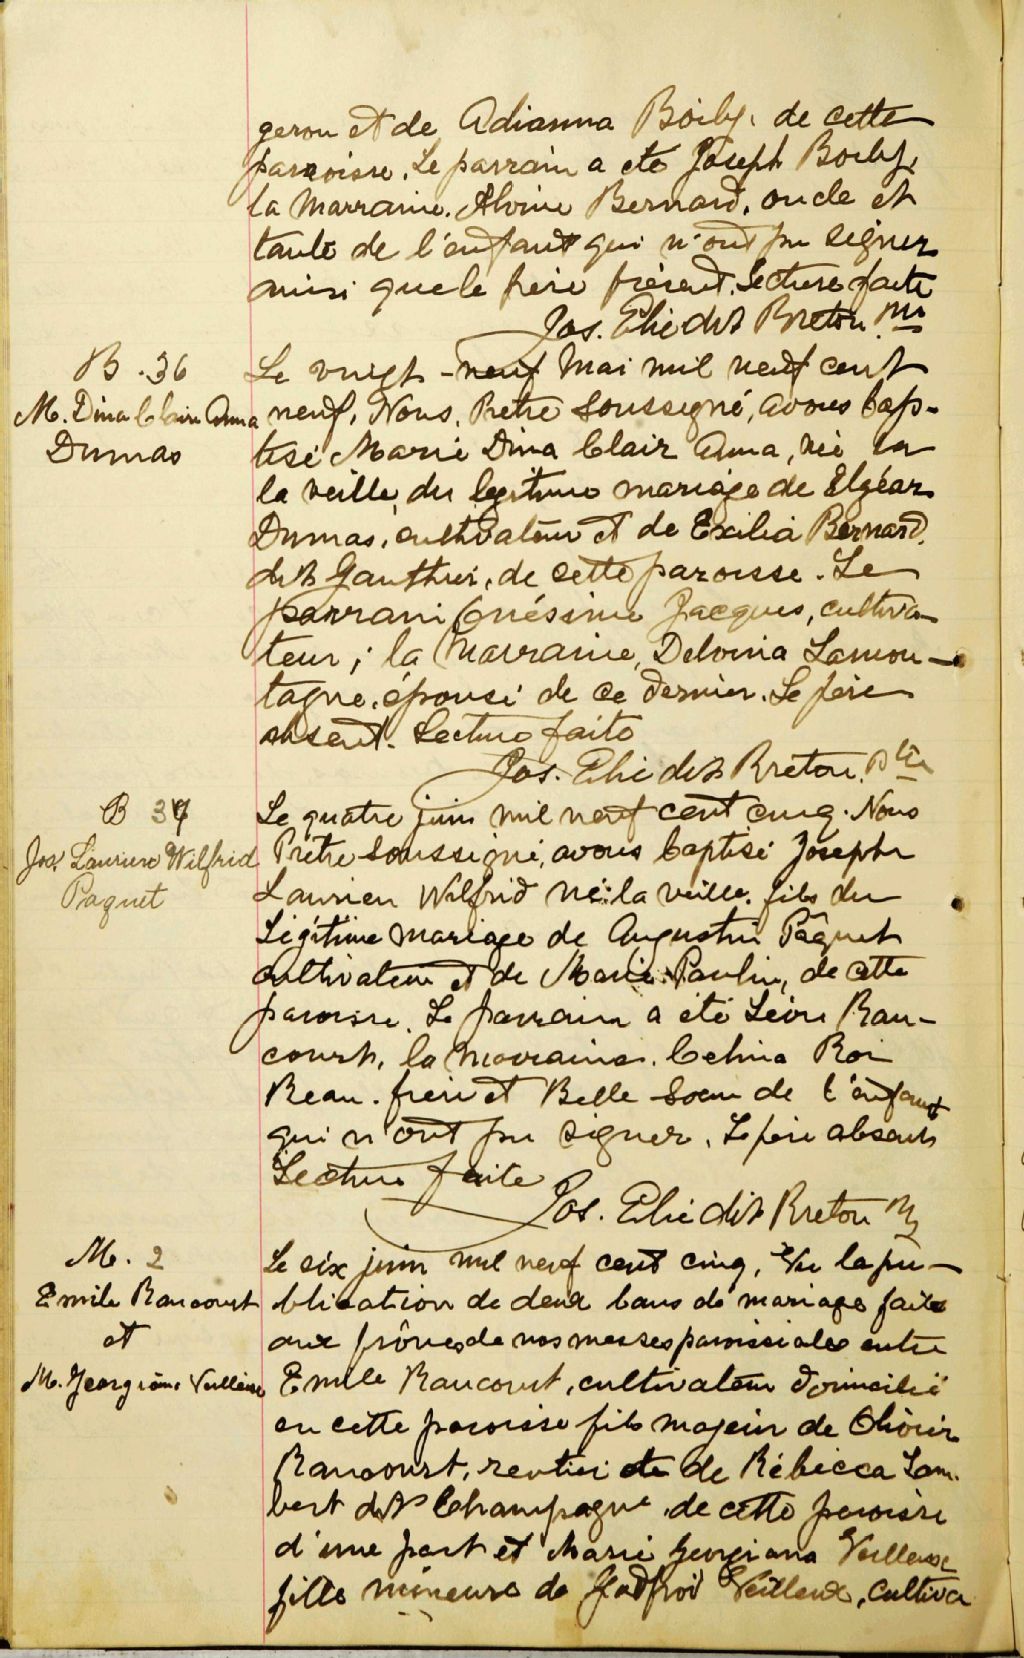 geron et de Adianna Boily, de cette
paroisse. Le parrain a ete Joseph Boily,
la Marraine. Alvine Bernard, oncle et
tante de l'enfant qui n'ont pu signer
ainsi que le père présent. Lecture faite
Jos. Elie dit Breton Ptre
B. 36
M. Dina Claire Anna
Dumas
Le vingt-neuf Mai mil neuf cent
neuf, Nous, Pretre Soussigné, avons bap-
tisé Marie Dina Clair Anna, née
la veille, du legitime mariage de Elgéar
Dumas, cultivateur et de Exilia Bernard
dit Gauthier, de cette paroisse. Le
parrain Onésime Jacques, cultiva-
teur; la Marraine, Delvina Lamon-
tagne, épouse de ce dernier. Le père
absent. Lecture faite
Jos. Elie dit Breton. Ptre
B 37
Jos. Laurien Wilfrid
Paquet
Le quatre juin mil neuf cent cinq. Nous
Prêtre Soussigné, avons baptisé Joseph
Laurien Wilfrid né la veille, fils du
Légitime mariage de Augustin Pâquet
cultivateur et de Marie Poulin, de cette
paroisse. Le parrain a été Léon Ran-
court, la marraine. Celina Roi
Beau-frère et Belle-Soeur de l'enfant
qui n'ont pu signer. Le père absent
Lecture faite
Jos. Elie dit Breton
M. 2
Emile Rancourt
et
M. Georgiana Veilleux
Le six juin mil neuf cent cinq, Vu la pu-
blication de deux bans de mariage faite
aux prônes de nos messes paroissiales entre
Emile Rancourt, cultivateur domicilié
en cette paroisse fils majeur de Olivier
Rancourt, rentier et de Rébecca Lam-
bert dit Champagne de cette paroisse
d'une part et Marie Georgiana Veilleux
fille mineure de Godfroi Veilleux, cultiva